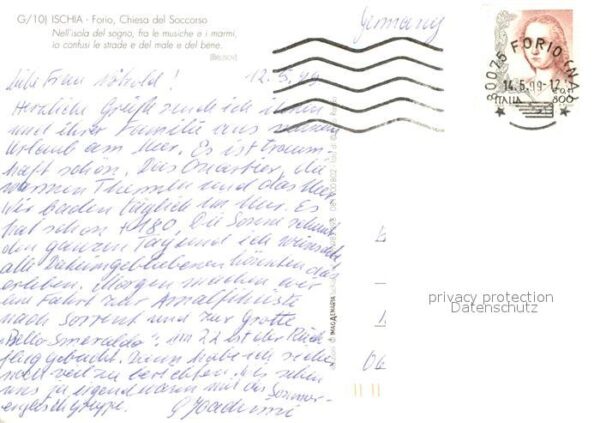 G/10) ISCHIA - Forio, Chiesa del Soccorso
Nell'isola del sogno, fra le musiche e i marmi,
io confusi le strade e del male e del bene.
Germany
80075 FORIO (NA)
14.5.99-17
ITALIA 800
Liebe Frau ! 12.5.99
Herzliche Grüße sende ich Ihnen
und Ihrer Familie aus meinem
Urlaub am Meer. Es ist traum-
haft schön. Das Quartier, die
warmen Thermen und das Meer
Wir baden täglich im Meer. Es
hat schon + 18°. Die Sonne scheint
den ganzen Tag und ich wünsche,
alle Daheimgebliebenen könnten das
erleben. Morgen machen wir
eine Fahrt zur Amalfiküste
nach Sorrent und zur Grotte
"Bello Smeraldo". Am 22. ist der Rück
flug gebucht. Dann habe ich sicher
noch viel zu berichten.
uns zu irgendwann mit der Sommer-
englischgruppe.
06
privacy protection
Datenschutz